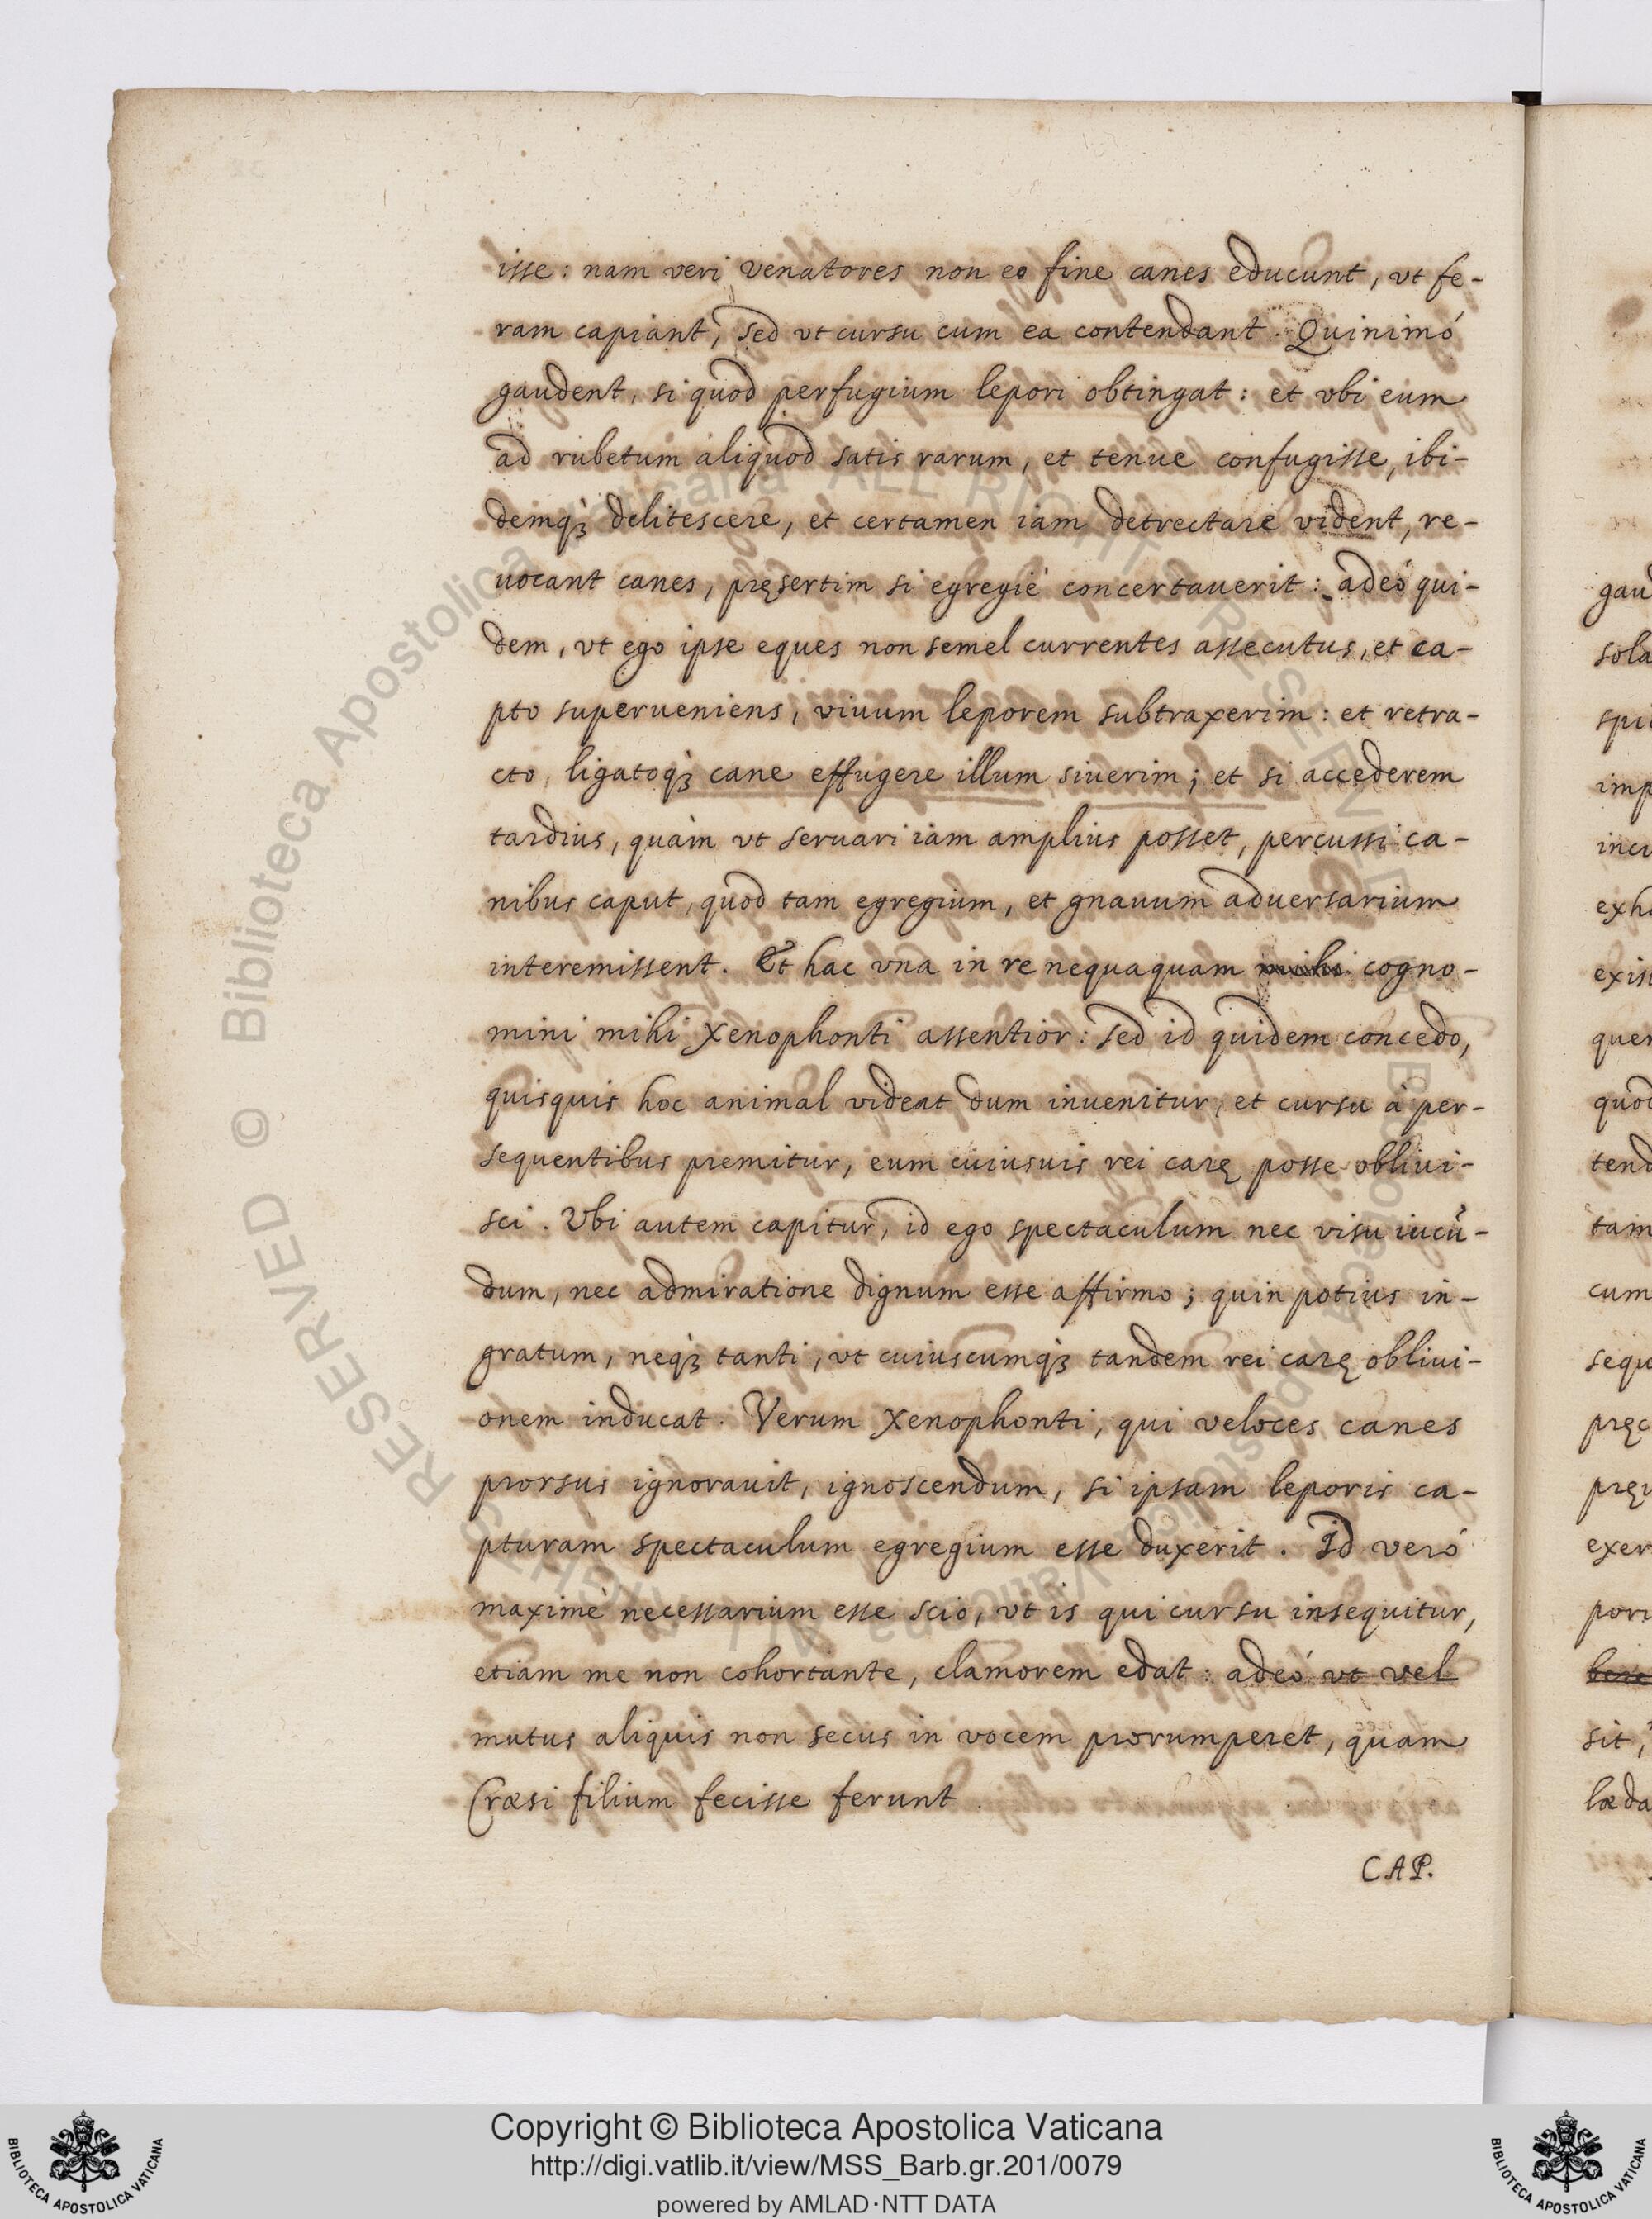 isse: nam veri venatores non eo fine canes educunt, vt fe-
ram capiant, sed vt cursu cum ea contendant. Quinimó
gaudent, si quod perfugium lepori obtingat: et vbi eum
ad rubetum aliquod satis rarum, et tenue confugisse, ibi-
demqꝫ delitescere, et certamen iam detrectare vident, re-
uocant canes, pręsertim si egregiè concertauerit: adeó qui-
dem, vt ego ipse eques non semel currentes assecutus, et ca-
pto superueniens, viuum leporem subtraxerim: et retra-
cto, ligatoqꝫ cane effugere illum siuerim; et si accederem
tardius, quàm vt seruari iam amplius posset, percussi ca-
nibus caput, quod tam egregium, et gnauum aduersarium
interemissent. Et hac vna in re nequaquam mihi cogno-
mini mihi Xenophonti assentior: sed id quidem concedo,
quisquis hoc animal videat dum inuenitur, et cursu à per-
sequentibus premitur, eum cuiusuis rei carę posse obliui-
sci. Vbi autem capitur, id ego spectaculum nec visu iucū-
dum, nec admiratione dignum esse affirmo; quin potius in-
gratum, neqꝫ tanti, vt cuiuscumqꝫ tandem rei carę obliui-
onem inducat. Verum Xenophonti, qui veloces canes
prorsus ignorauit, ignoscendum, si ipsam leporis ca-
pturam spectaculum egregium esse duxerit. Id veró
maximè necessarium esse scio, vt is qui cursu insequitur,
etiam me non cohortante, clamorem edat: adeó vt vel
mutus aliquis non secus in vocem prorumperet, quam
Crœsi filium fecisse ferunt.
CAP.
gau
sola
spi
imp
inci
exh
exis
quer
quod
tend
tam
cum
sequ
pręc
pręt
exer
pori
sit,
lœda
RESERVED © Biblioteca Apostolica Vaticana ALL RIGHTS RESERVED © Biblioteca Apostolica Vaticana ALL RIGHTS
Copyright © Biblioteca Apostolica Vaticana
http://digi.vatlib.it/view/MSS_Barb.gr.201/0079
powered by AMLAD·NTT DATA
BIBLIOTECA APOSTOLICA VATICANA
BIBLIOTECA APOSTOLICA VATICANA